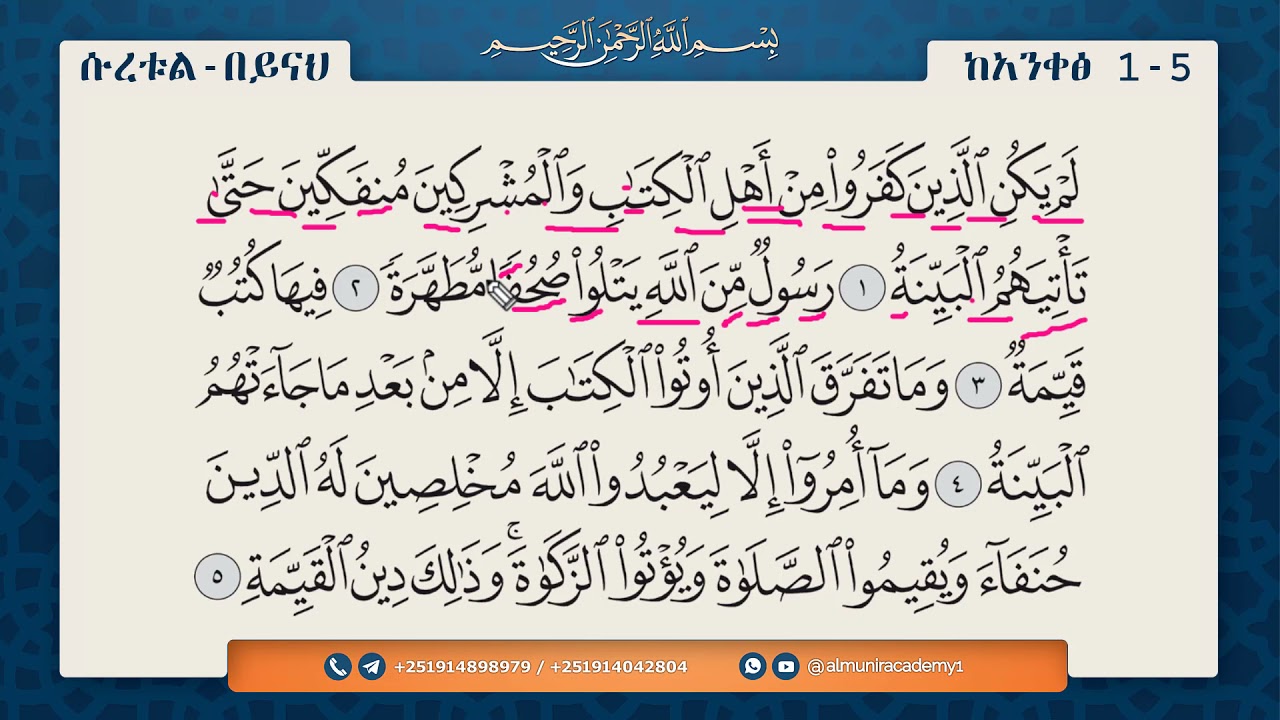 بِسْمِ ٱللَّهِ ٱلرَّحْمَٰنِ ٱلرَّحِيمِ
ሱረቱል - በይናህ
ከአንቀፅ 1 - 5
لَمْ يَكُنِ ٱلَّذِينَ كَفَرُوا۟ مِنْ أَهْلِ ٱلْكِتَٰبِ وَٱلْمُشْرِكِينَ مُنفَكِّينَ حَتَّىٰ
تَأْتِيَهُمُ ٱلْبَيِّنَةُ ١ رَسُولٌ مِّنَ ٱللَّهِ يَتْلُوا۟ صُحُفًا مُّطَهَّرَةً ٢ فِيهَا كُتُبٌ
قَيِّمَةٌ ٣ وَمَا تَفَرَّقَ ٱلَّذِينَ أُوتُوا۟ ٱلْكِتَٰبَ إِلَّا مِنۢ بَعْدِ مَا جَآءَتْهُمُ
ٱلْبَيِّنَةُ ٤ وَمَآ أُمِرُوٓا۟ إِلَّا لِيَعْبُدُوا۟ ٱللَّهَ مُخْلِصِينَ لَهُ ٱلدِّينَ
حُنَفَآءَ وَيُقِيمُوا۟ ٱلصَّلَوٰةَ وَيُؤْتُوا۟ ٱلزَّكَوٰةَ ۚ وَذَٰلِكَ دِينُ ٱلْقَيِّمَةِ ٥
+251914898979 / +251914042804
@almuniracademy1